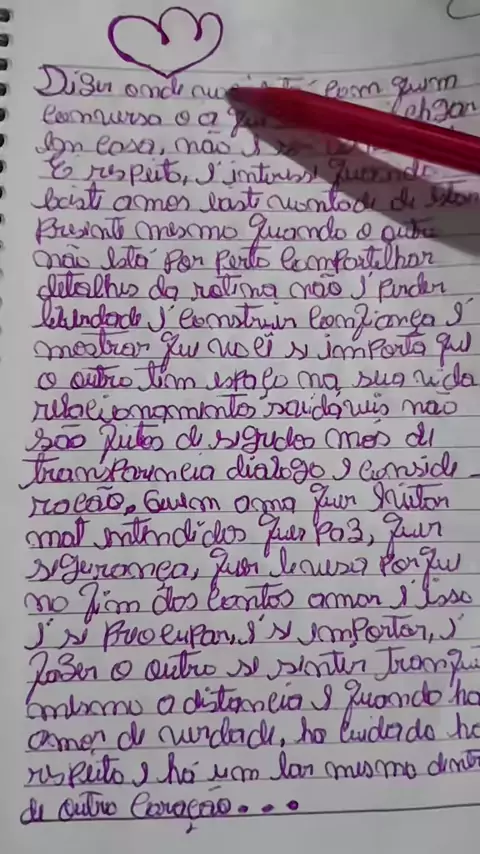 Dizer onde você está com quem
conversa o a que chegar
em casa, não é
É respeito, é interesse quando
existe amor existe vontade de estar
presente mesmo quando o outro
não está por perto compartilhar
detalhes da rotina não é perder
liberdade é construir confiança é
mostrar que você se importa que
o outro tem espaço na sua vida
relacionamentos saudáveis não
são feitos de segredos mas de
transparencia dialogo e conside-
ração, Quem ama quer evitar
mal intendidos quer paz, quer
segurança, quer leveza porque
no fim das contas amor é isso
é se preocupar, é se importar, é
fazer o outro se sentir tranqui
a distancia e quando ha
amor de verdade, ha cuidado ha
respeito e há um lar mesmo dentr
de outro coração...